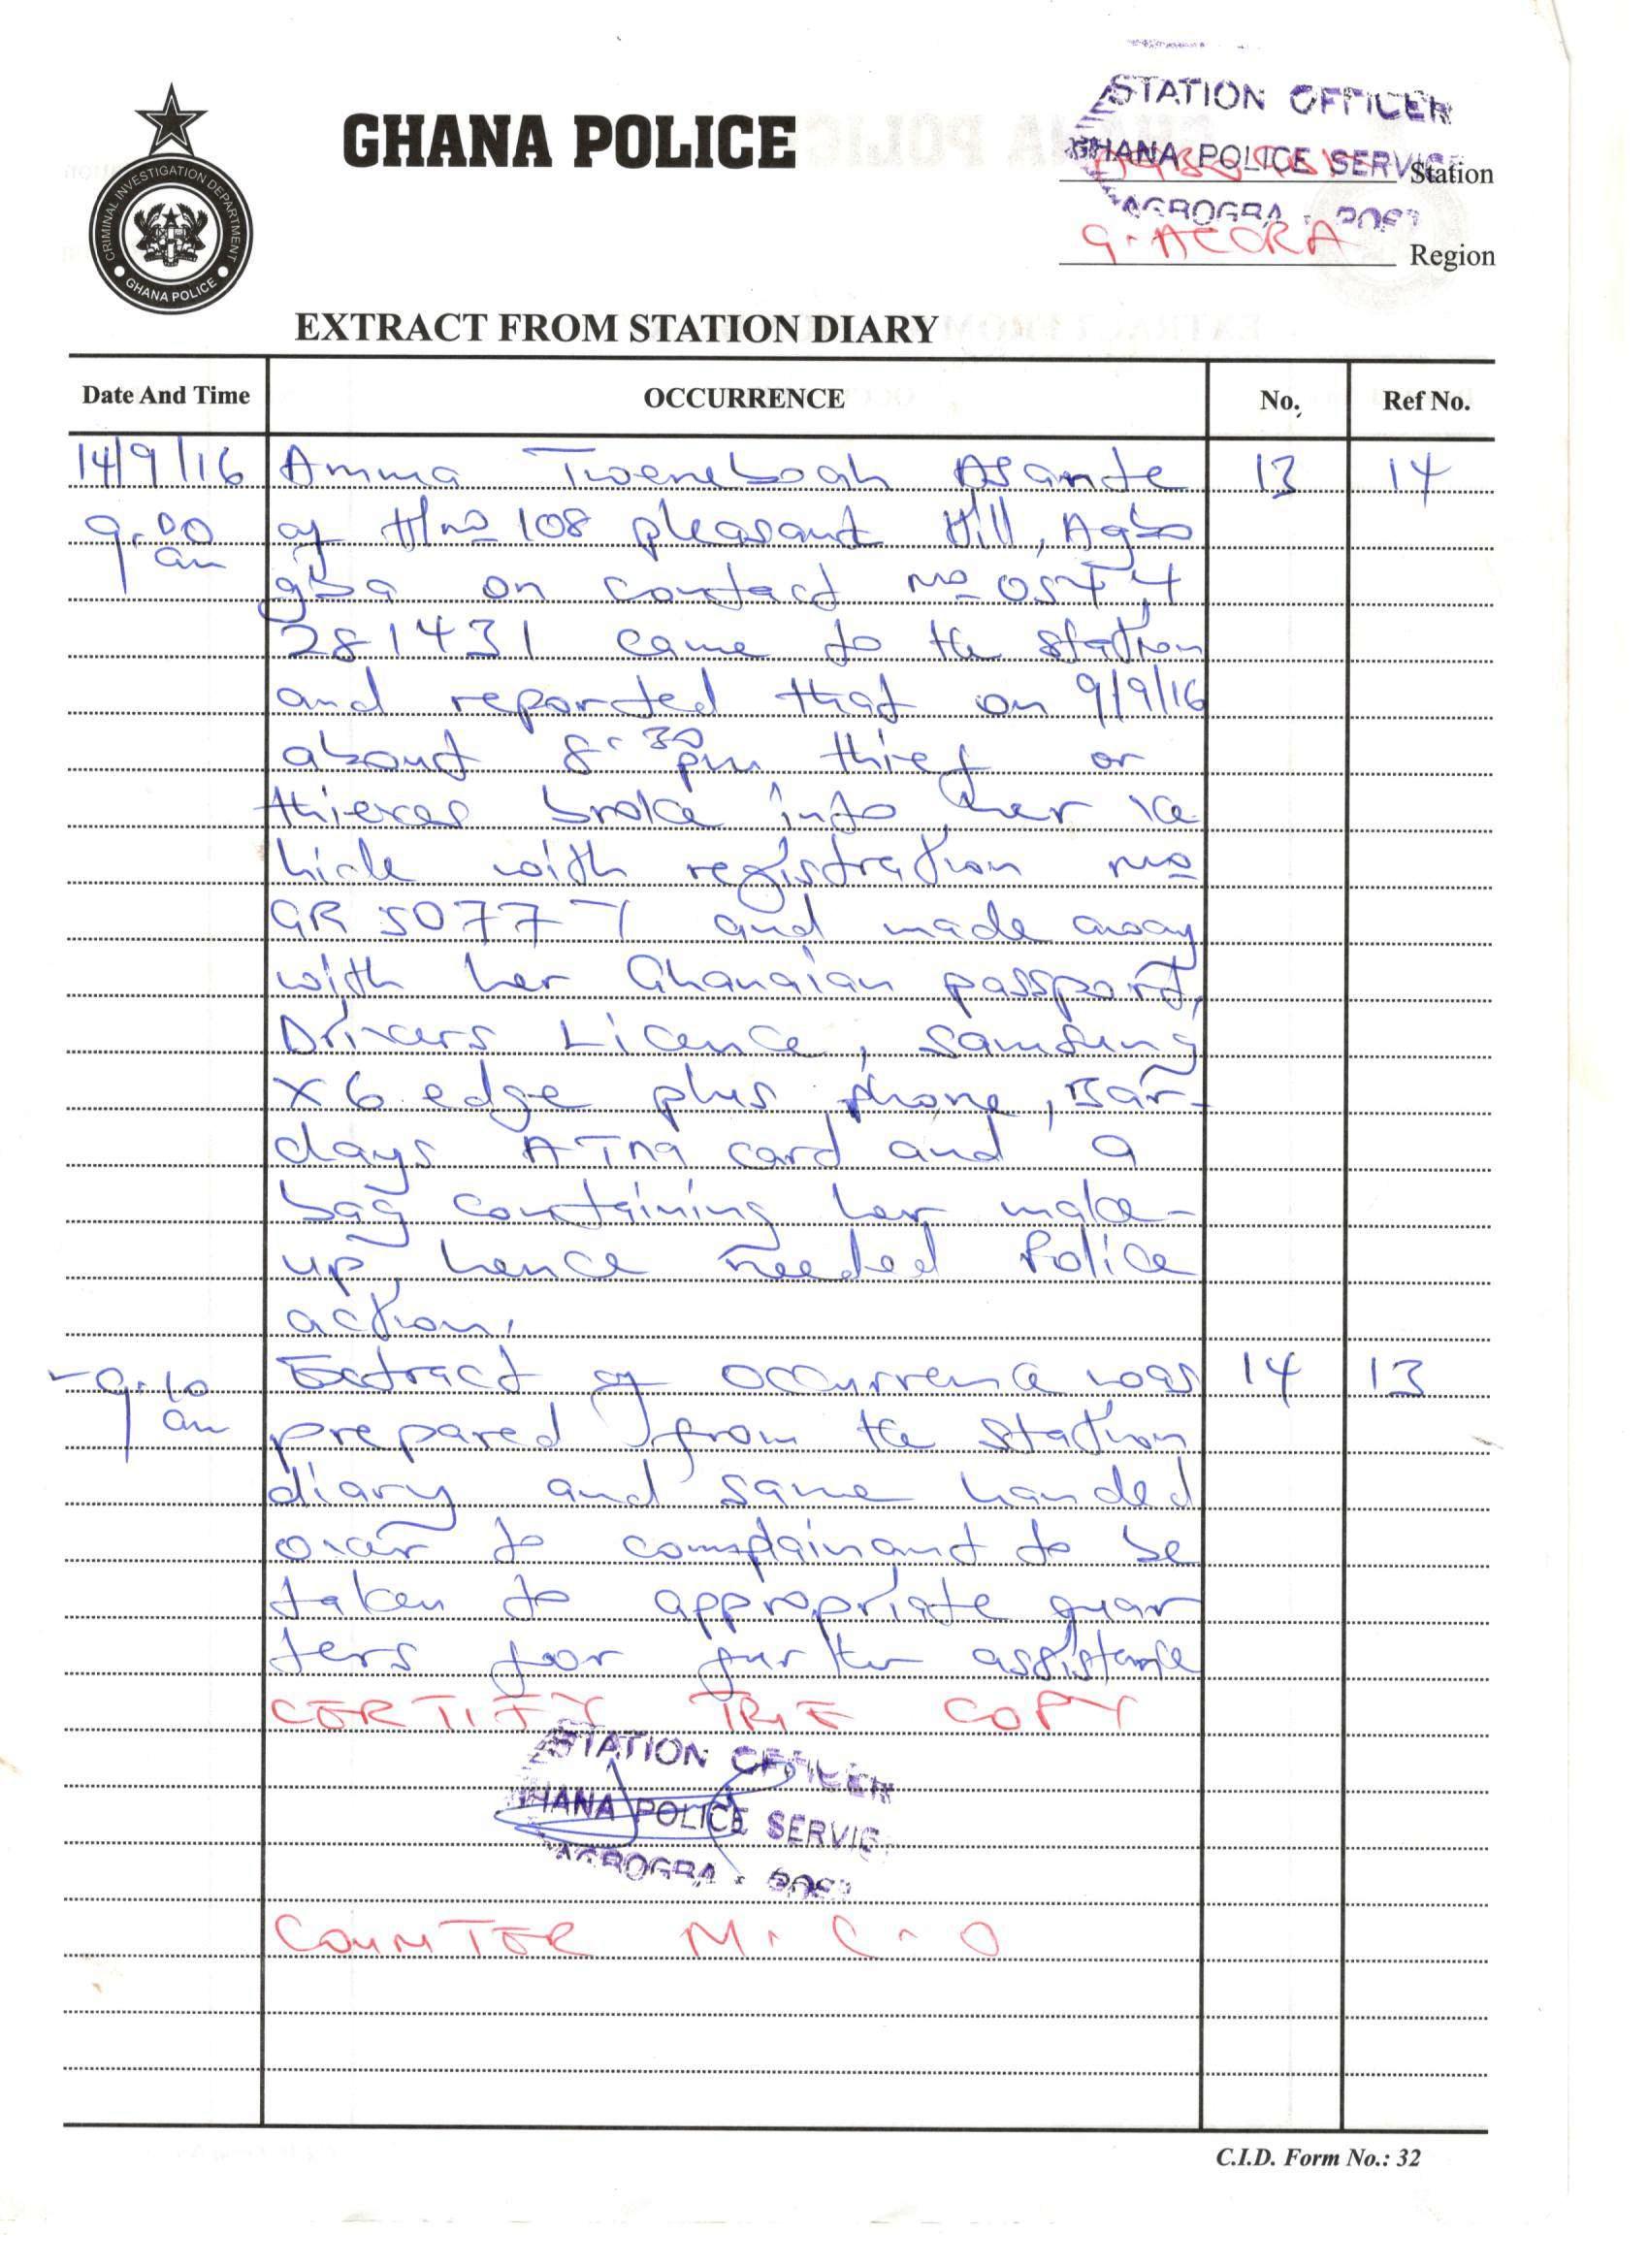 STATION OFFICER
GHANA POLICE SERVICE
GHANA POLICE
Station
G. ACCRA Region
CRIMINAL INVESTIGATION DEPARTMENT
GHANA POLICE
EXTRACT FROM STATION DIARY
Date And Time OCCURRENCE No. Ref No.
14/9/16 Amma Tweneboah Asante 13 14
9.00 am of H/no 108 pleasant Hill, Agbo
gba on contact no 0544
281431 came to the station
and reported that on 9/9/16
about 8.30 pm thief or
thieves broke into her ve
hicle with registration no
GR 5077 and made away
with her Ghanaian passport,
Drivers Licence, Samsung
X6 edge plus phone, Bar-
clays ATM card and a
bag containing her make-
up, hence needed Police
action.
- 9.10 am Extract of occurrence was 14 13
prepared from the station
diary and same handed
over to complainant to be
taken to appropriate quar
ters for further assistance
CERTIFY TRUE COPY
STATION OFFICER
GHANA POLICE SERVIC
COUNTER N. C. O
C.I.D. Form No.: 32